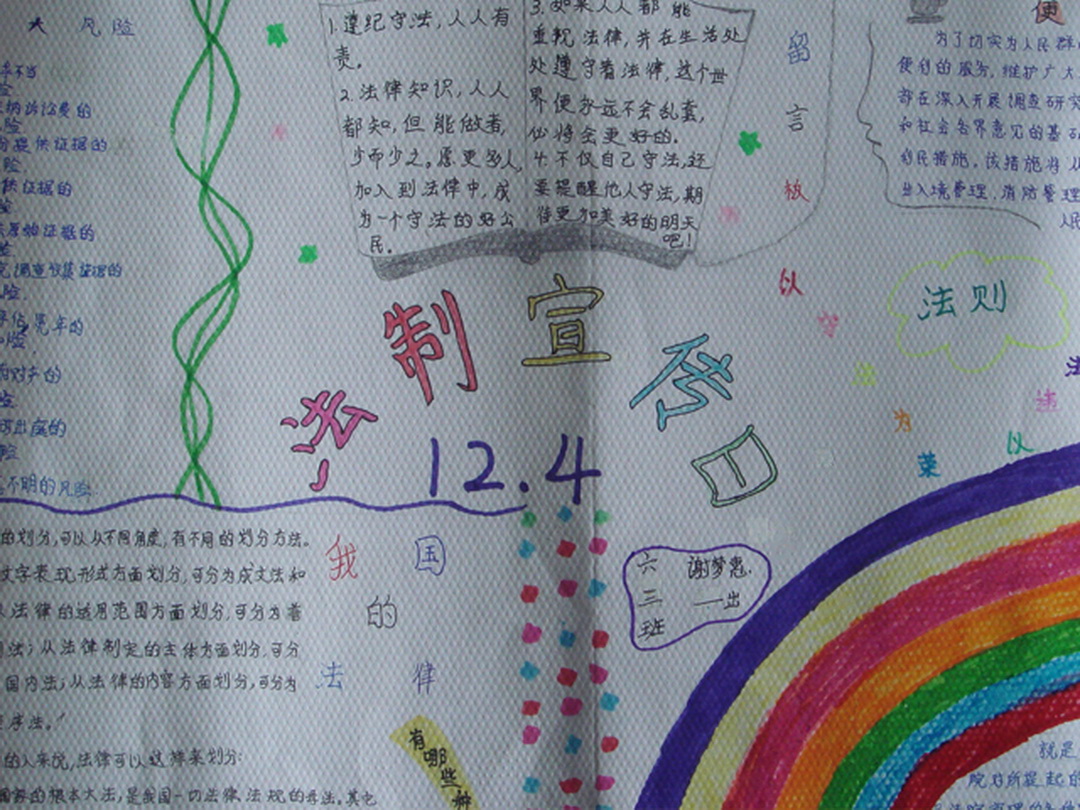 大 风险
纳诉讼费的
提供证据的
供证据的
原始证据的
调查收集证据的
不明的风险
1.遵纪守法,人人有
责。
2.法律知识,人人
都知,但能做者,
少而少之。愿更多人,
加入到法律中,成
为一个守法的好公
民。
3.如果人人都能
重视法律,并在生活处
处遵守着法律,这个世
界便永远不会乱套,
必将会更好的.
4.不仅自己守法,还
要提醒他人守法,期
待更加美好的明天
吧!
留言板
便
为了切实为人民群
便利的服务,维护广大
部在深入开展调查研究
和社会各界意见的基础
利民措施。该措施将从
出入境管理,消防管理
人民
法则
以守法为荣
以违法
法制宣传日
12.4
六三班
谢梦惠.
——出
我国的法律
的划分,可以从不同角度,有不同的划分方法。
文字表现形式方面划分,可分为成文法和
从法律的适用范围方面划分,可分为普
法;从法律制定的主体方面划分,可分
国内法;从法律的内容方面划分,可分为
序法。
的人来说,法律可以这样来划分:
的根本大法,是我国一切法律、法规的母法。其它
有哪些
就是
院对所提起的